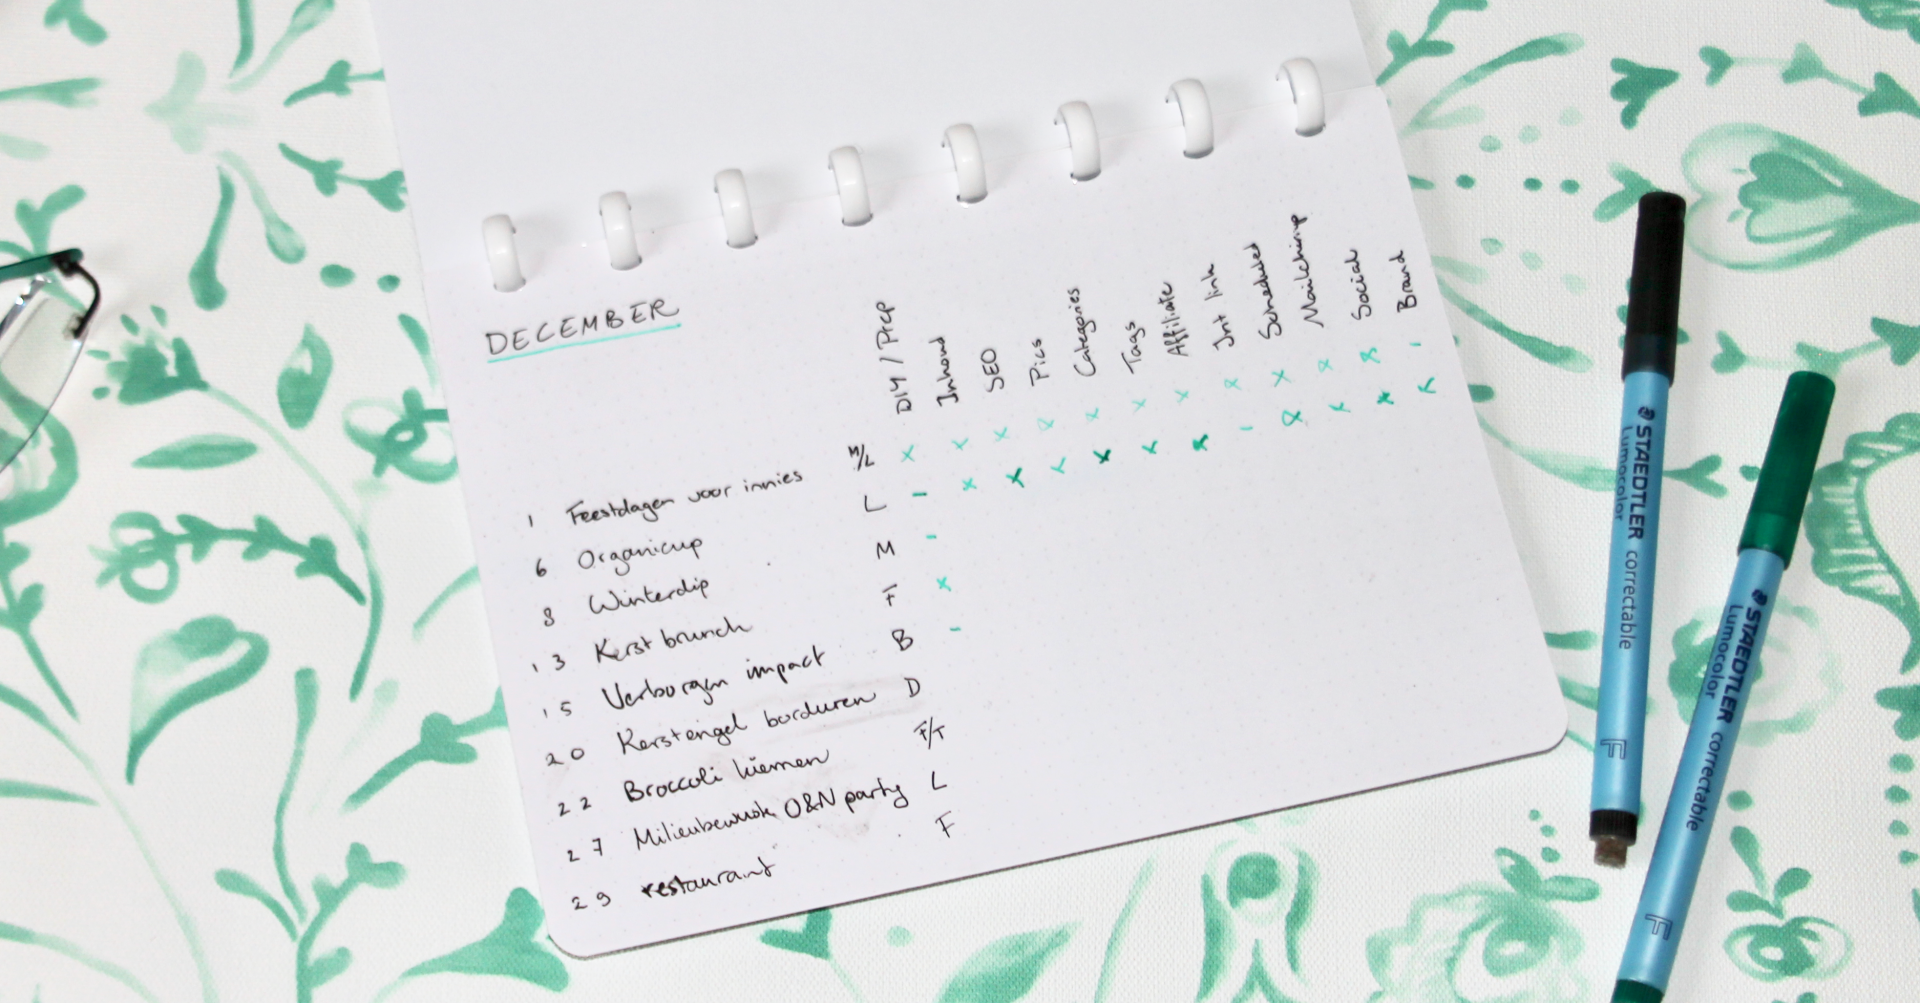 DECEMBER
DIY / Prep
Inhoud
SEO
Pics
Categories
Tags
Affiliate
Int link
Scheduled
Mailchimp
Social
Brand
1 Feestdagen voor innies M/L x x x x x x x x x x x -
6 Organicup L - x x x x x x - x x x x
8 Winterdip M -
13 Kerst brunch F x
15 Verborgen impact B -
20 Kerstengel borduren D
22 Broccoli kiemen F/T
27 Milieubewust O&N party L
29 restaurant F
STAEDTLER correctable
Lumocolor
F
STAEDTLER correctable
Lumocolor
F